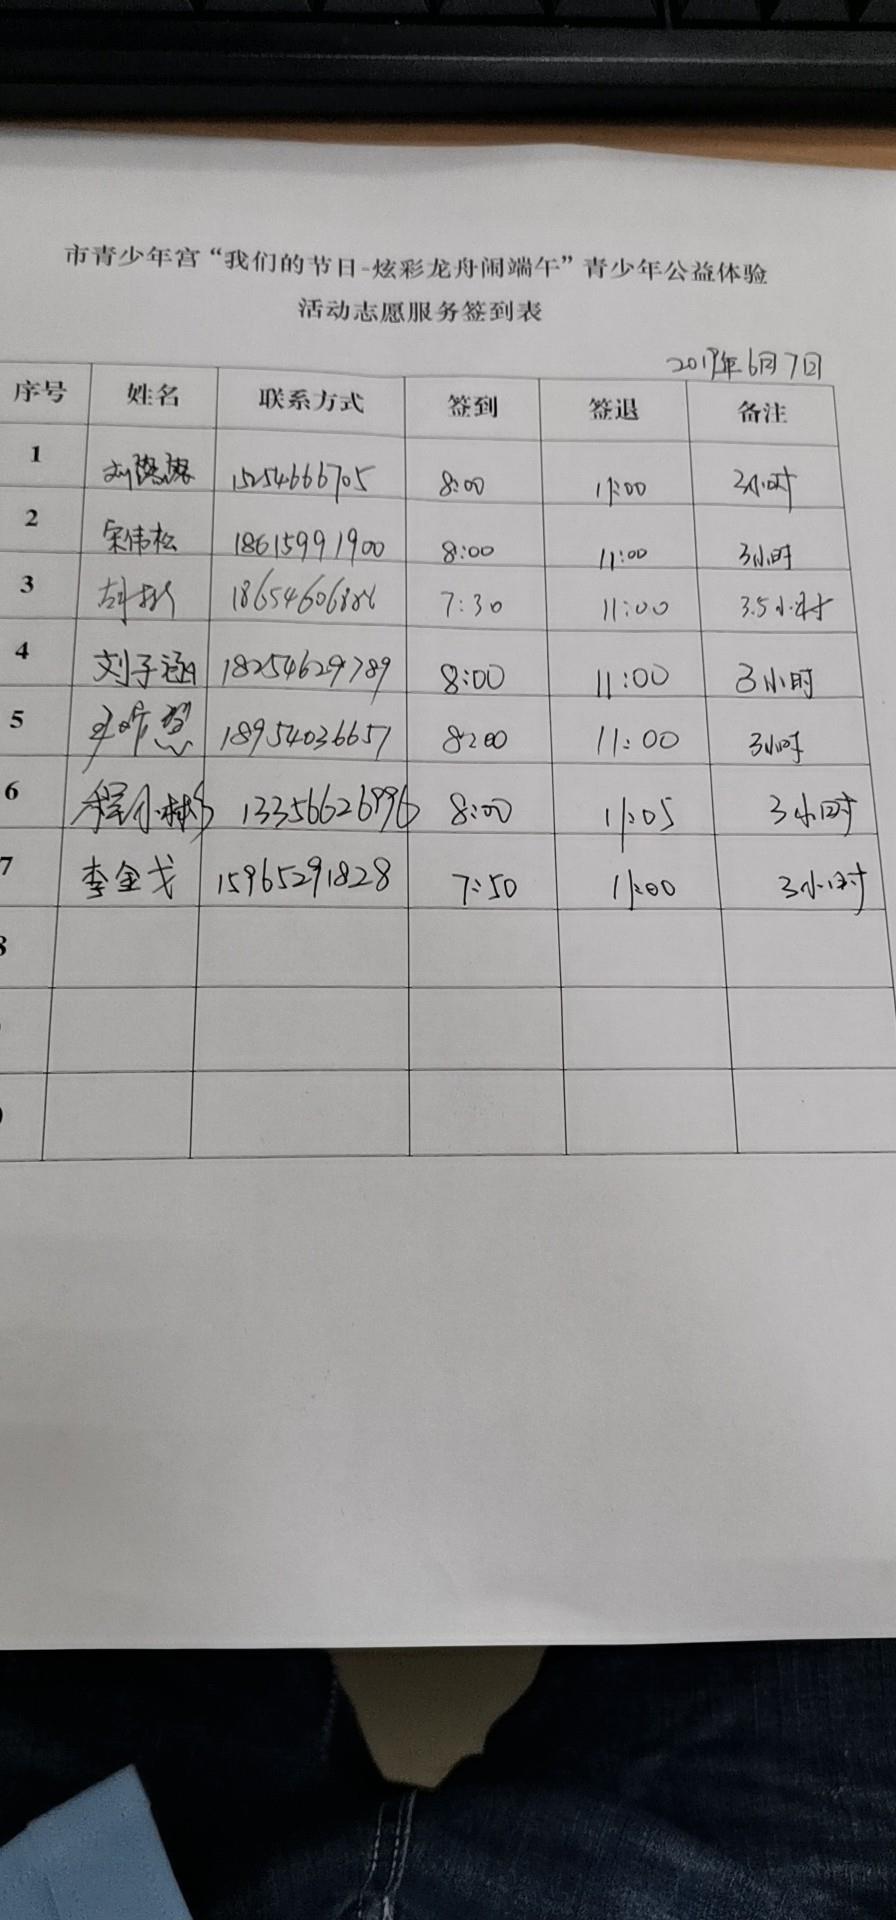 市青少年宫“我们的节日-炫彩龙舟闹端午”青少年公益体验
活动志愿服务签到表
2019年6月7日
序号 姓名 联系方式 签到 签退 备注
1 15254666705 8:00 11:00 3小时
2 宋伟松 18615991900 8:00 11:00 3小时
3 7:30 11:00 3.5小时
4 刘子涵 18254629789 8:00 11:00 3小时
5 18954036657 8:00 11:00 3小时
6 13356626996 8:00 11:05 3小时
7 李金戈 15965291828 7:50 11:00 3小时